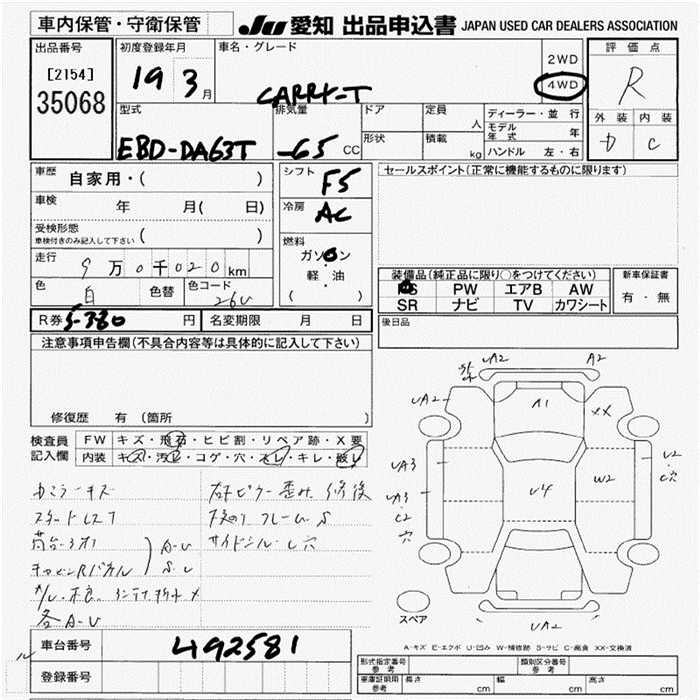 車内保管・守衛保管
JU 愛知 出品申込書 JAPAN USED CAR DEALERS ASSOCIATION
出品番号
[2154]
35068
初度登録年月
19 3月
車名・グレード
CARRY-T
2WD
4WD
評価点
R
外装 内装
D C
型式
EBD-DA63T
排気量
-65 CC
ドア
定員
人
形状
積載
kg
ディーラー・並行
モデル年式 年
ハンドル 左・右
車歴
自家用・( )
車検 年 月( 日)
受検形態
車検付きのみ記入して下さい ( )
走行
9万0千020km
色 白 色替 色コード 26U
シフト
F5
冷房
AC
燃料
ガソリン
・
軽・油
( )
セールスポイント(正常に機能するものに限ります)
装備品(純正品に限り○をつけてください)
PS PW エアB AW
SR ナビ TV カワシート
新車保証書
有・無
後日品
R券 5-380 円 名変期限 月 日
注意事項申告欄(不具合内容等は具体的に記入して下さい)
修復歴 有(箇所 )
検査員
記入欄
FW キズ・飛石・ヒビ割・リペア跡・X要
内装 キズ・汚レ・コゲ・穴・スレ・キレ・破レ
荷台
A-U
S-U
各A-U
修後
フレーム S
サイドシル-L穴
UA2 A2
UA2 A1 XX
UA3 U4 W2 U2
・穴
UA3
・C2
穴
スペア
UA2
A-キズ E-エクボ U-凹み W-補修跡 S-サビ C-腐食 XX-交換済
車台番号 492581
登録番号
形式指定番号
参考
類別区分番号
参考
車庫証明用
参考
長さ cm 幅 cm 高さ cm